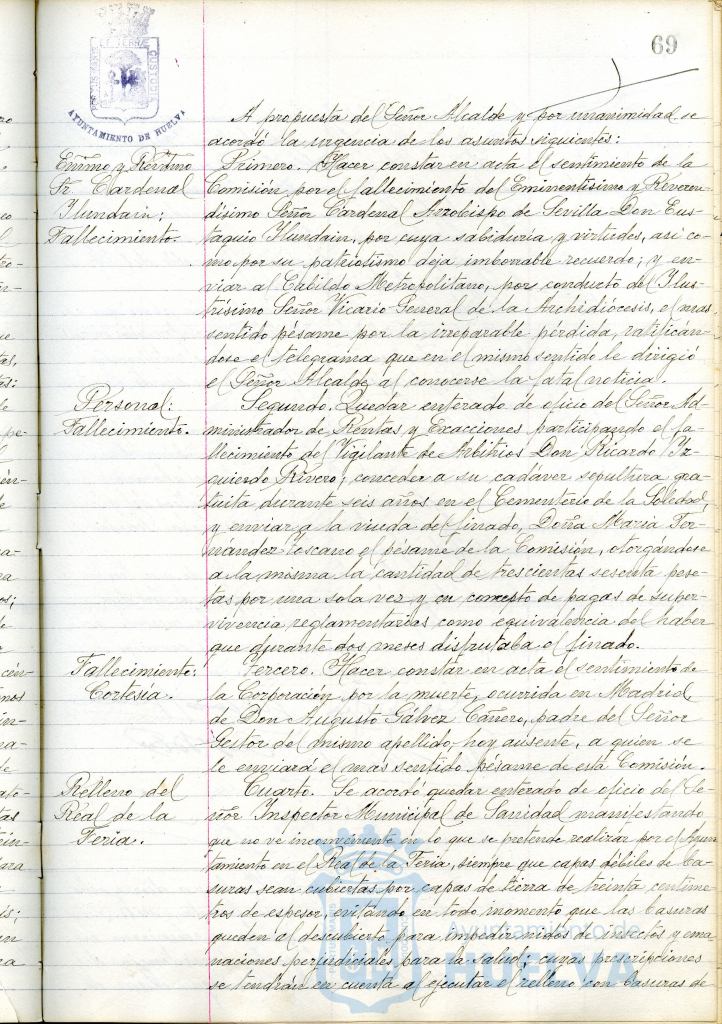 69
PORTUS MARIS ET TERRAE CUSTODIA
AYUNTAMIENTO DE HUELVA
A propuesta del Señor Alcalde y por unanimidad se
acordó la urgencia de los asuntos siguientes:
Emmo y Revmo
Sr. Cardenal
Ylundain;
Fallecimiento.
Primero. Hacer constar en acta el sentimiento de la
Comisión por el fallecimiento del Eminentísimo y Reveren-
dísimo Señor Cardenal Arzobispo de Sevilla Don Eus-
taquio Ylundain, por cuya sabiduría y virtudes, así co-
mo por su patriotismo deja imborrable recuerdo; y en-
viar al Cabildo Metropolitano, por conducto del Ilus-
trísimo Señor Vicario General de la Archidiócesis, el mas
sentido pésame por la irreparable pérdida, ratificán-
dose el telegrama que en el mismo sentido le dirigió
el Señor Alcalde al conocerse la fatal noticia.
Personal:
Fallecimiento.
Segundo. Quedar enterado de oficio del Señor Ad-
ministrador de Rentas y Exacciones participando el fa-
llecimiento del Vigilante de Arbitrios Don Ricardo Yz-
quierdo Rivero; conceder a su cadáver sepultura gra-
tuita durante seis años en el Cementerio de la Soledad,
y enviar a la viuda del finado, Doña Maria Fer-
nández Toscano el pésame de la Comisión, otorgándose
a la misma la cantidad de trescientas sesenta pese-
tas por una sola vez y en concepto de pagas de super-
vivencia reglamentarias como equivalencia del haber
que durante dos meses disfrutaba el finado.
Fallecimiento:
Cortesía.
Tercero. Hacer constar en acta el sentimiento de
la Corporación por la muerte, ocurrida en Madrid,
de Don Augusto Gálvez Cañero, padre del Señor
Gestor del mismo apellido, hoy ausente, a quien se
le enviará el mas sentido pésame de esta Comisión.
Relleno del
Real de la
Feria.
Cuarto. Se acordó quedar enterado de oficio del Se-
ñor Inspector Municipal de Sanidad manifestando
que no ve inconveniente en lo que se pretende realizar por el Ayun-
tamiento en el Real de la Feria, siempre que capas débiles de ba-
suras sean cubiertas por capas de tierra de treinta centíme-
tros de espesor, evitando en todo momento que las basuras
queden al descubierto para impedir nidos de insectos y ema-
naciones perjudiciales para la salud; cuyas prescripciones
se tendrán en cuenta al ejecutar el relleno con basuras de
Ayuntamiento de
HUELVA